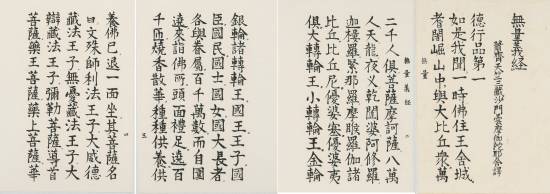 無量義経
蕭齊天竺三藏沙門曇摩伽陀耶舎譯
德行品第一
如是我聞一時佛住王舎城
耆闍崛山中與大比丘衆萬
無量
二千人俱菩薩摩訶薩八萬
人天龍夜叉乾闥婆阿修羅
迦樓羅緊那羅摩睺羅伽諸
比丘比丘尼優婆塞優婆夷
俱大轉輪王小轉輪王金輪
銀輪諸轉輪王國王王子國
臣國民國士國女國大長者
各與眷屬百千萬數而自圍
遶來詣佛所頭面禮足遶百
千匝燒香散華種種供養供
養佛已退一面坐其菩薩名
曰文殊師利法王子大威德
藏法王子無憂藏法王子大
辯藏法王子彌勒菩薩導首
菩薩藥王菩薩藥上菩薩華